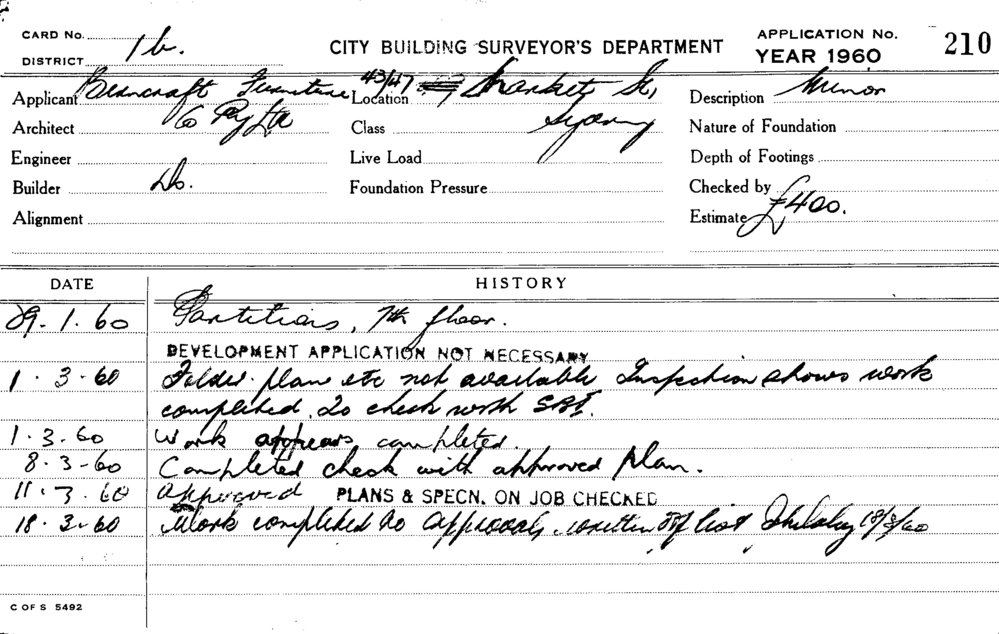 CARD No.
DISTRICT 1b.
CITY BUILDING SURVEYOR'S DEPARTMENT
APPLICATION No.
YEAR 1960
210
Applicant Furniture
Co Pty Ltd
Location 43/47 Market St,
Sydney
Description Minor
Architect
Class
Nature of Foundation
Engineer
Live Load
Depth of Footings
Builder Do.
Foundation Pressure
Checked by
Alignment
Estimate £400.
DATE
HISTORY
29.1.60 Partitions, 7th floor.
DEVELOPMENT APPLICATION NOT NECESSARY
1.3.60 Folder plan etc not available Inspection shows work
completed. To check with
1.3.60 Work appears completed.
8.3-60 Completed check with approved plan.
11.3.60 Approved PLANS & SPECN. ON JOB CHECKED
18.3.60 Work completed to approval, written off list 18/3/60
C OF S 5492